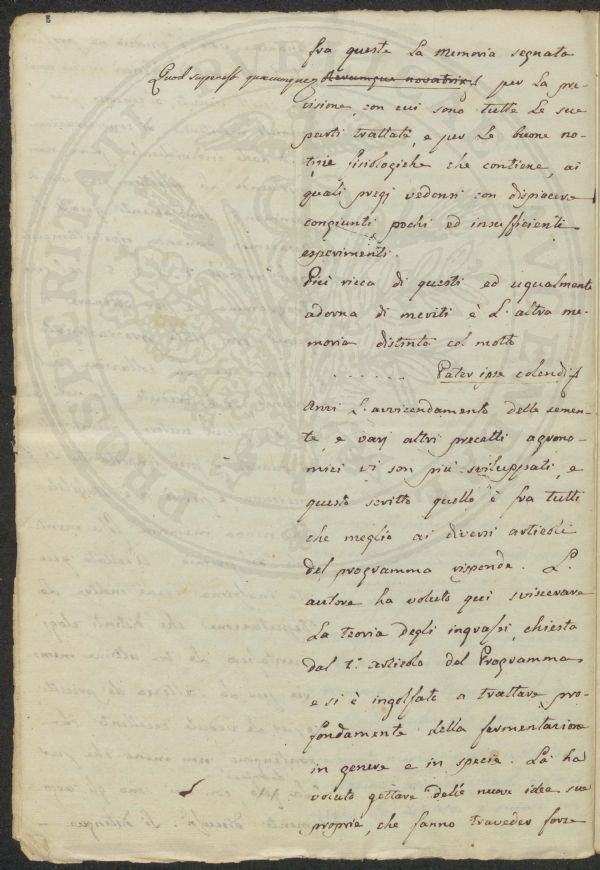 8
fra queste la memoria segnata
Quod superest quæcunque Rerumque novatrix per la pre-
cisione, con cui sono tutte le sue
parti trattate, e per le buone no-
tizie fisiologiche che contiene, ai
quali pregj vedonsi con dispiacere
congiunti pochi ed insufficienti
esperimenti.
Più ricca di questi ed ugualmente
adorna di meriti è l'altra me-
moria distinta col motto
. . . . . . Pater ipse colendi
Anzi l'avvicendamento delle semen-
te, e varj altri precetti agrono-
mici vi son più sviluppati, e
questo scritto quello è fra tutti
che meglio ai diversi articoli
del programma risponde. L'
autore ha voluto qui sviscerare
la teoria degli ingrassi, chiesta
dal 1.º articolo del Programma
e si è ingolfato a trattare pro-
fondamente della fermentazione
in genere e in specie. Là ha
voluto gettare delle nuove idee sue
proprie, che fanno traveder forse